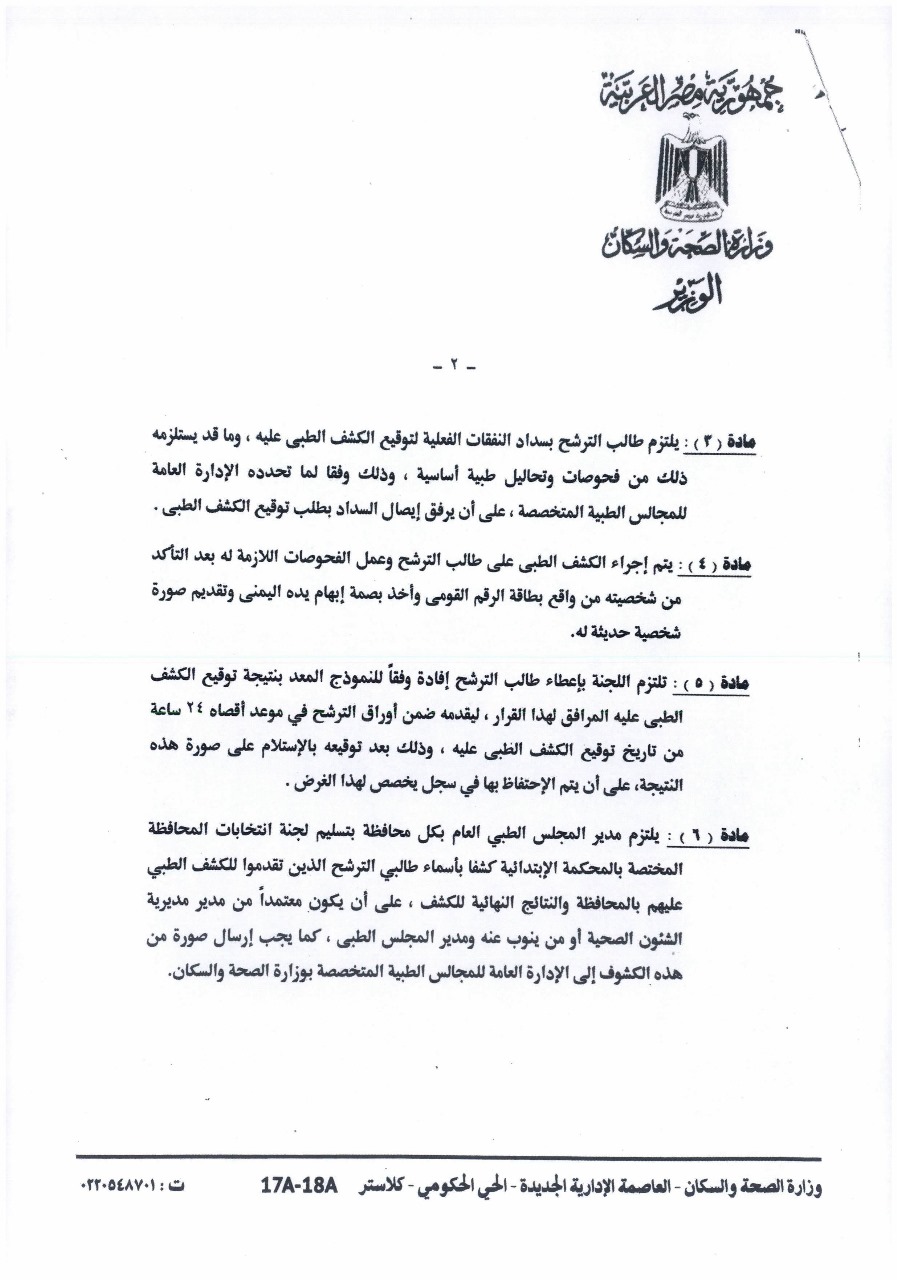 جمهورية مصر العربية
وزارة الصحة والسكان
الوزير
- ٢ -
مادة (٣) : يلتزم طالب الترشح بسداد النفقات الفعلية لتوقيع الكشف الطبى عليه ، وما قد يستلزمه
ذلك من فحوصات وتحاليل طبية أساسية ، وذلك وفقا لما تحدده الإدارة العامة
للمجالس الطبية المتخصصة ، على أن يرفق إيصال السداد بطلب توقيع الكشف الطبى .
مادة (٤) : يتم إجراء الكشف الطبى على طالب الترشح وعمل الفحوصات اللازمة له بعد التأكد
من شخصيته من واقع بطاقة الرقم القومى وأخذ بصمة إبهام يده اليمنى وتقديم صورة
شخصية حديثة له.
مادة (٥) : تلتزم اللجنة بإعطاء طالب الترشح إفادة وفقاً للنموذج المعد بنتيجة توقيع الكشف
الطبى عليه المرافق لهذا القرار ، ليقدمه ضمن أوراق الترشح في موعد أقصاه ٢٤ ساعة
من تاريخ توقيع الكشف الطبى عليه ، وذلك بعد توقيعه بالإستلام على صورة هذه
النتيجة، على أن يتم الإحتفاظ بها في سجل يخصص لهذا الغرض .
مادة (٦) : يلتزم مدير المجلس الطبي العام بكل محافظة بتسليم لجنة انتخابات المحافظة
المختصة بالمحكمة الإبتدائية كشفا بأسماء طالبي الترشح الذين تقدموا للكشف الطبي
عليهم بالمحافظة والنتائج النهائية للكشف ، على أن يكون معتمداً من مدير مديرية
الشئون الصحية أو من ينوب عنه ومدير المجلس الطبى ، كما يجب إرسال صورة من
هذه الكشوف إلى الإدارة العامة للمجالس الطبية المتخصصة بوزارة الصحة والسكان.
وزارة الصحة والسكان - العاصمة الإدارية الجديدة - الحي الحكومي - كلاستر 17A-18A ت : ٠٢٢٠٥٤٨٧٠١